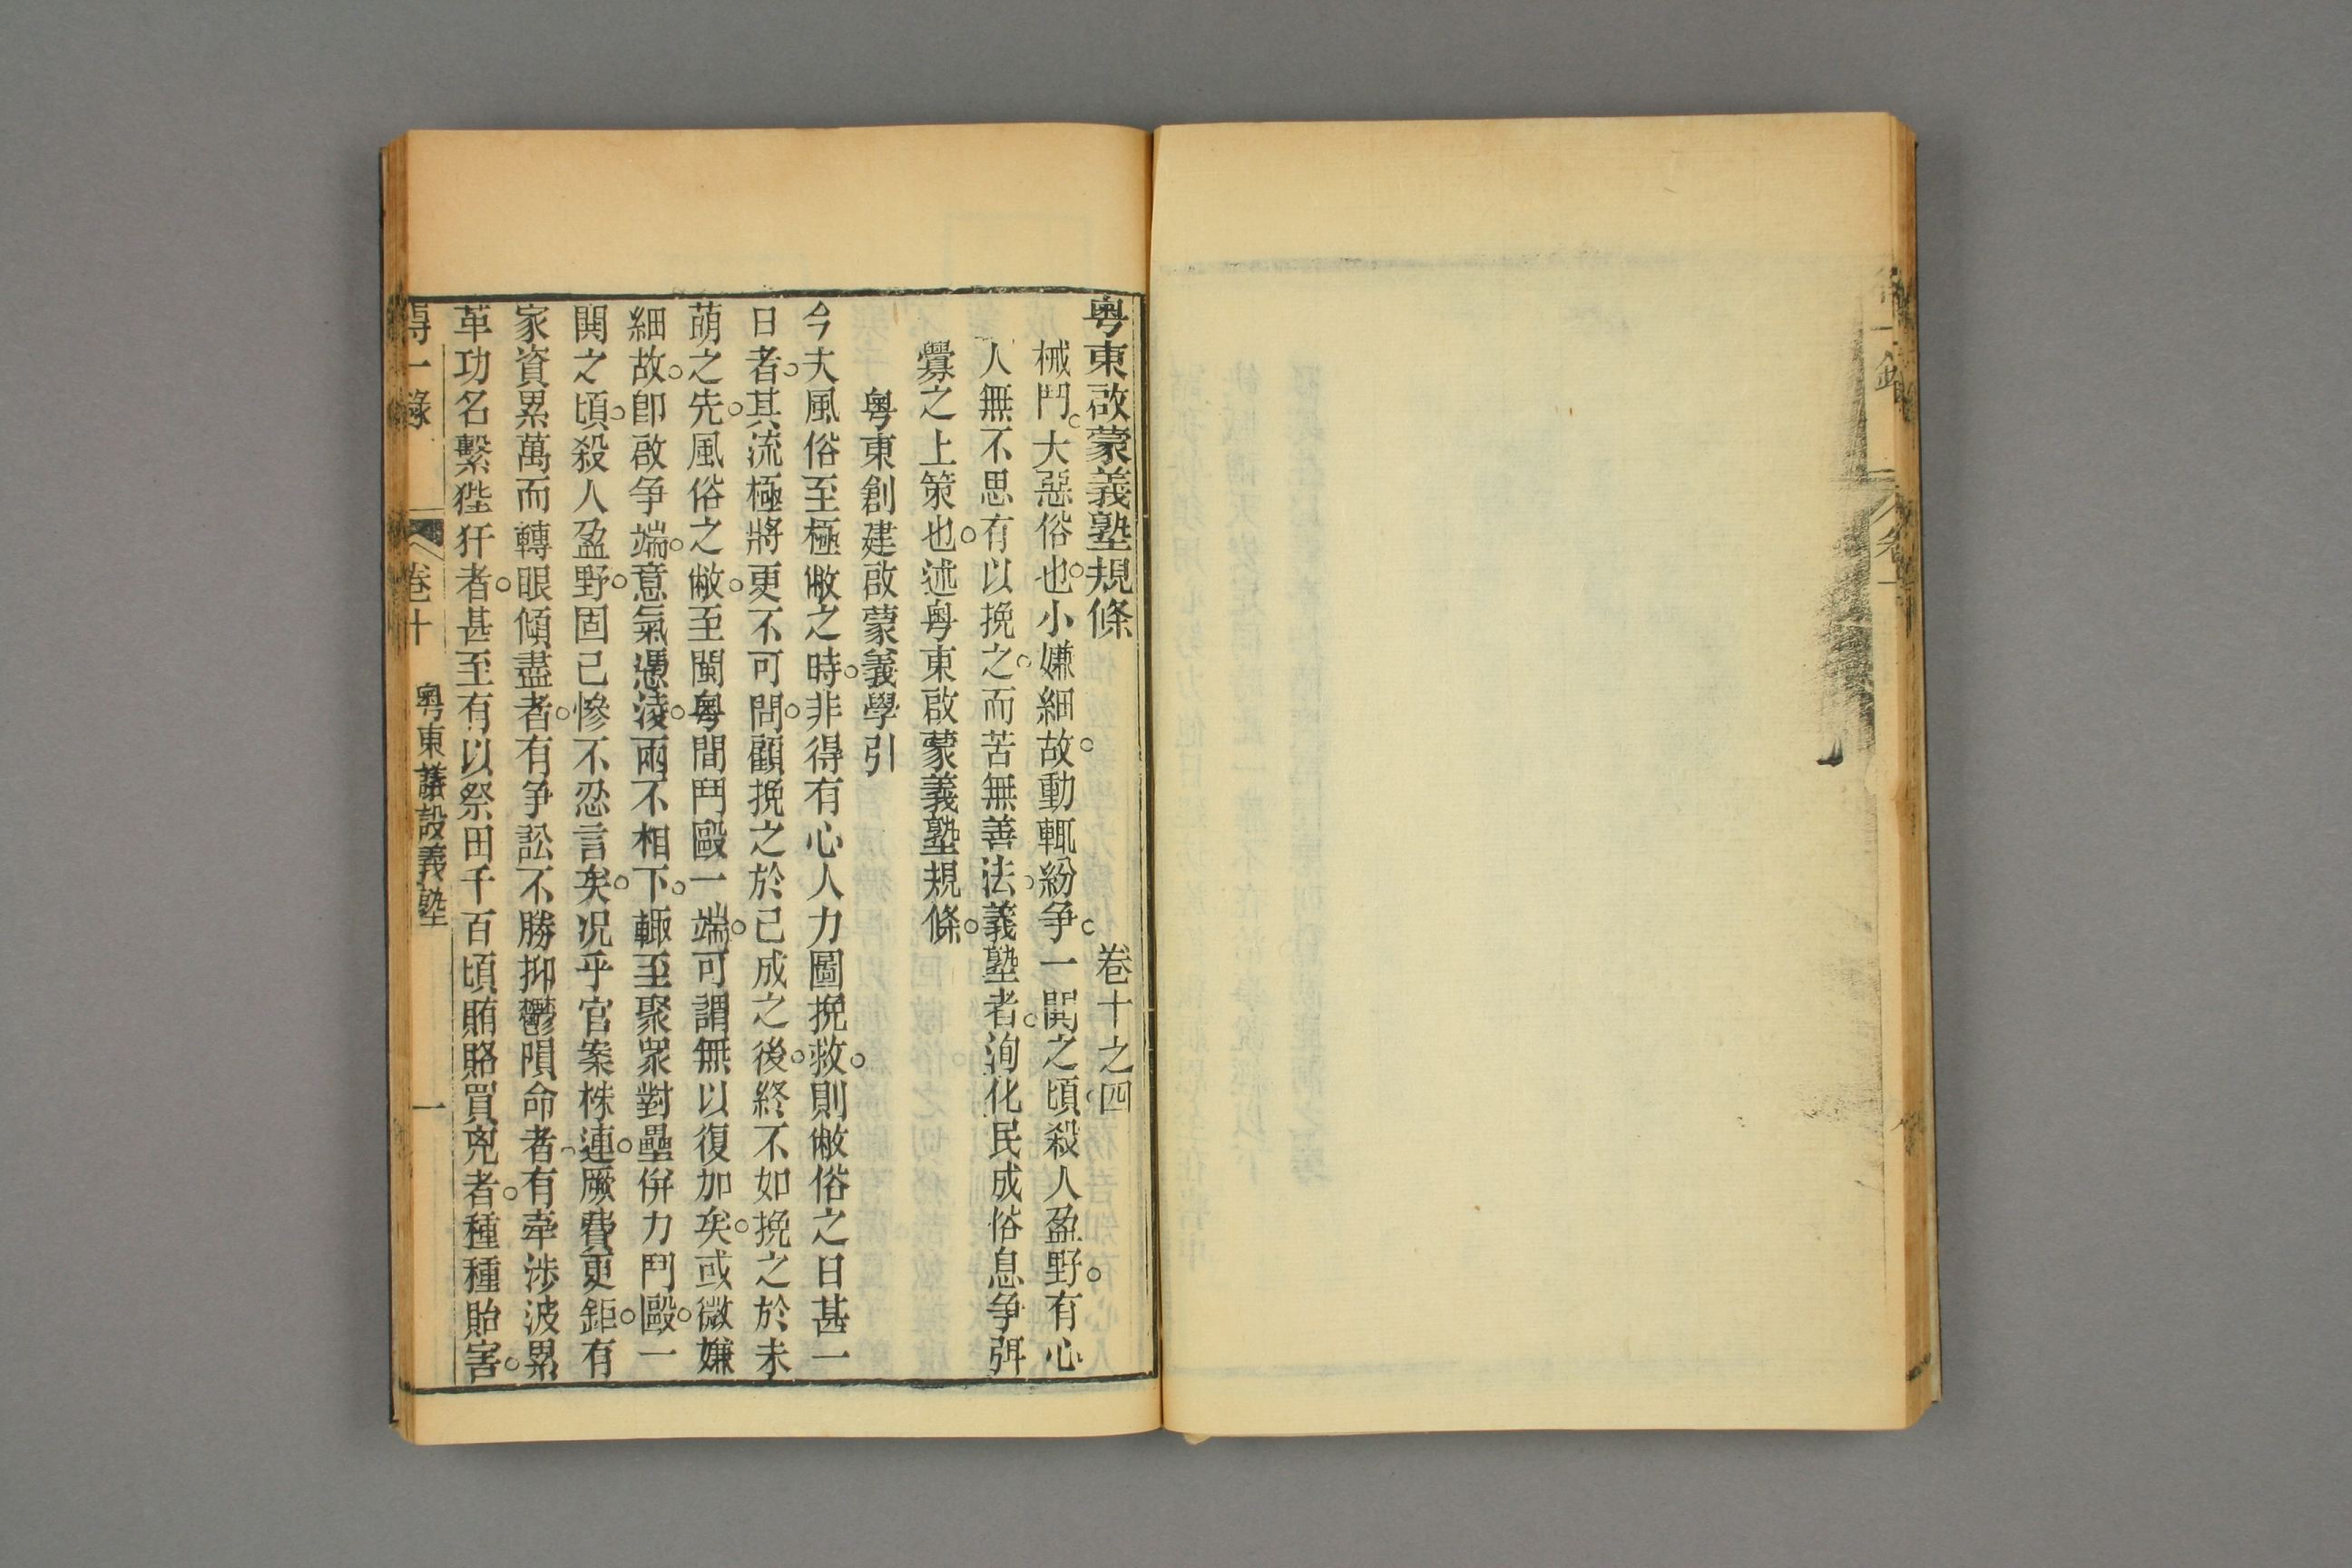 粵東啟蒙義塾規條　卷十之四
械鬥。大惡俗也。小嫌細故。動輒紛争。一鬨之頃。殺人盈野。有心
人無不思有以挽之。而苦無善法。義塾者。洵化民成俗息争弭
釁之上策也。述粵東啟蒙義塾規條。
粵東創建啟蒙義學引
今夫風俗至極敝之時。非得有心人力圖挽救。則敝俗之日甚一
日者。其流極將更不可問。顧挽之於已成之後。終不如挽之於未
萌之先。風俗之敝。至閩粵間鬥毆一端。可謂無以復加矣。或微嫌
細故。卽啟争端。意氣慿淩。兩不相下。輙至聚眾對壘。併力鬥毆。一
鬨之頃。殺人盈野。固已慘不忍言矣。况乎官案株連。厥費更鉅。有
家資累萬而轉眼傾盡者。有争訟不勝抑鬱隕命者。有牽涉波累
革功名繫狴犴者。甚至有以祭田千百頃賄賂買兇者。種種貽害。
得一錄　卷十　粵東議設義塾　一